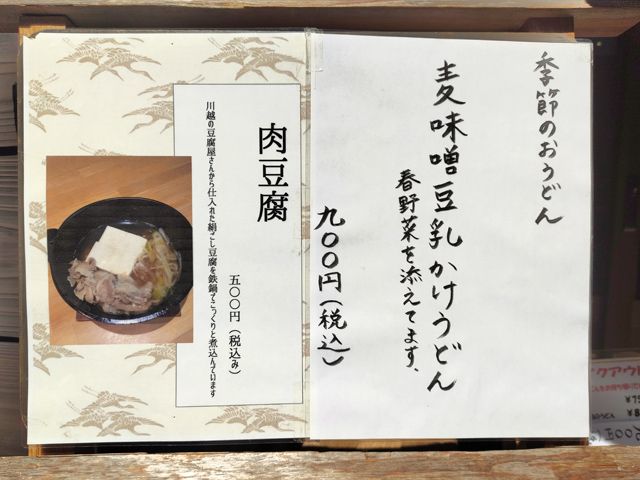 季節のおうどん
麦味噌豆乳かけうどん
春野菜を添えてます、
九〇〇円(税込)
肉豆腐
五〇〇円(税込み)
川越の豆腐屋さんから仕入れた絹ごし豆腐を鉄鍋でこっくりと煮込んでいます